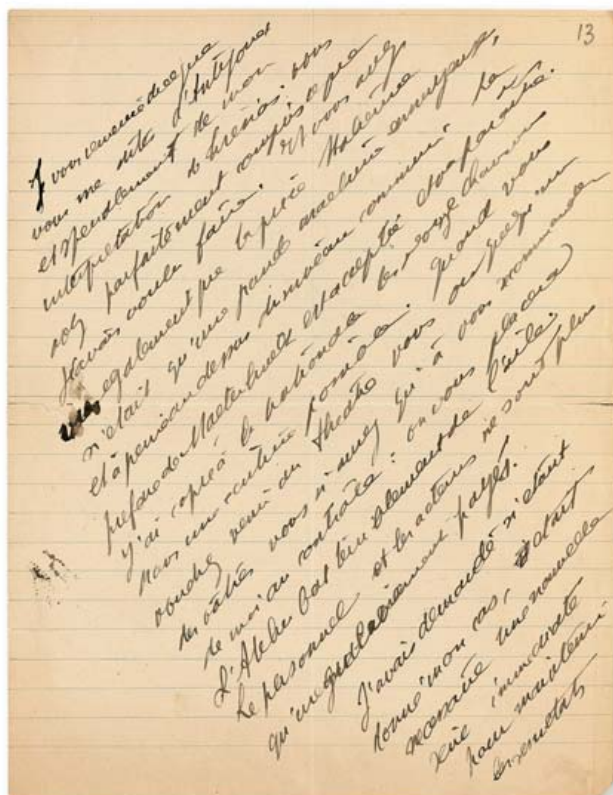 13
Je vous remercie de ce que
vous me dites d'Antigone
et spécialement de mon
interprétation de Tirésias. vous
avez parfaitement compris ce que
j'avais voulu faire. Et vous avez
vu également que la pièce italienne
n'était qu'une grande machine ennuyeuse,
et à peine au dessus du niveau commun. La
préface de Maeterlinck est acceptée et va paraître.
J'ai copié à la nationale les douze chansons
un Quand vous
voudrez venir au théâtre vous ou quelqu'un
des vôtres vous n'aurez qu'à vous recommander
de moi au contrôle : on vous placera
L'Atelier bat terriblement de l'aile.
Le personnel et les acteurs ne sont plus
qu'irrégulièrement payés.
J'avais demandé si étant
donné mon cas,
nécessaire une nouvelle
série immédiate
pour maintenir
les résultats